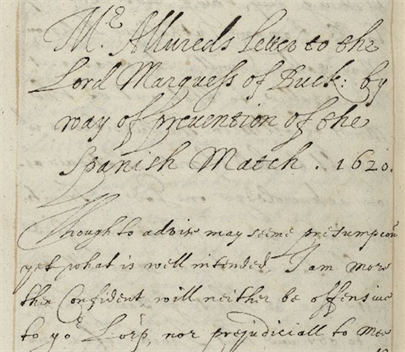 Mr Allureds Letter to the
Lord Marquess of Buck: by
way of prevention of the
Spanish Match. 1620.
Though to advise may seeme presumpcon
yet what is well intended, I am more
the Confident will neither be offensive
to yor Lorp, nor prejudiciall to mee